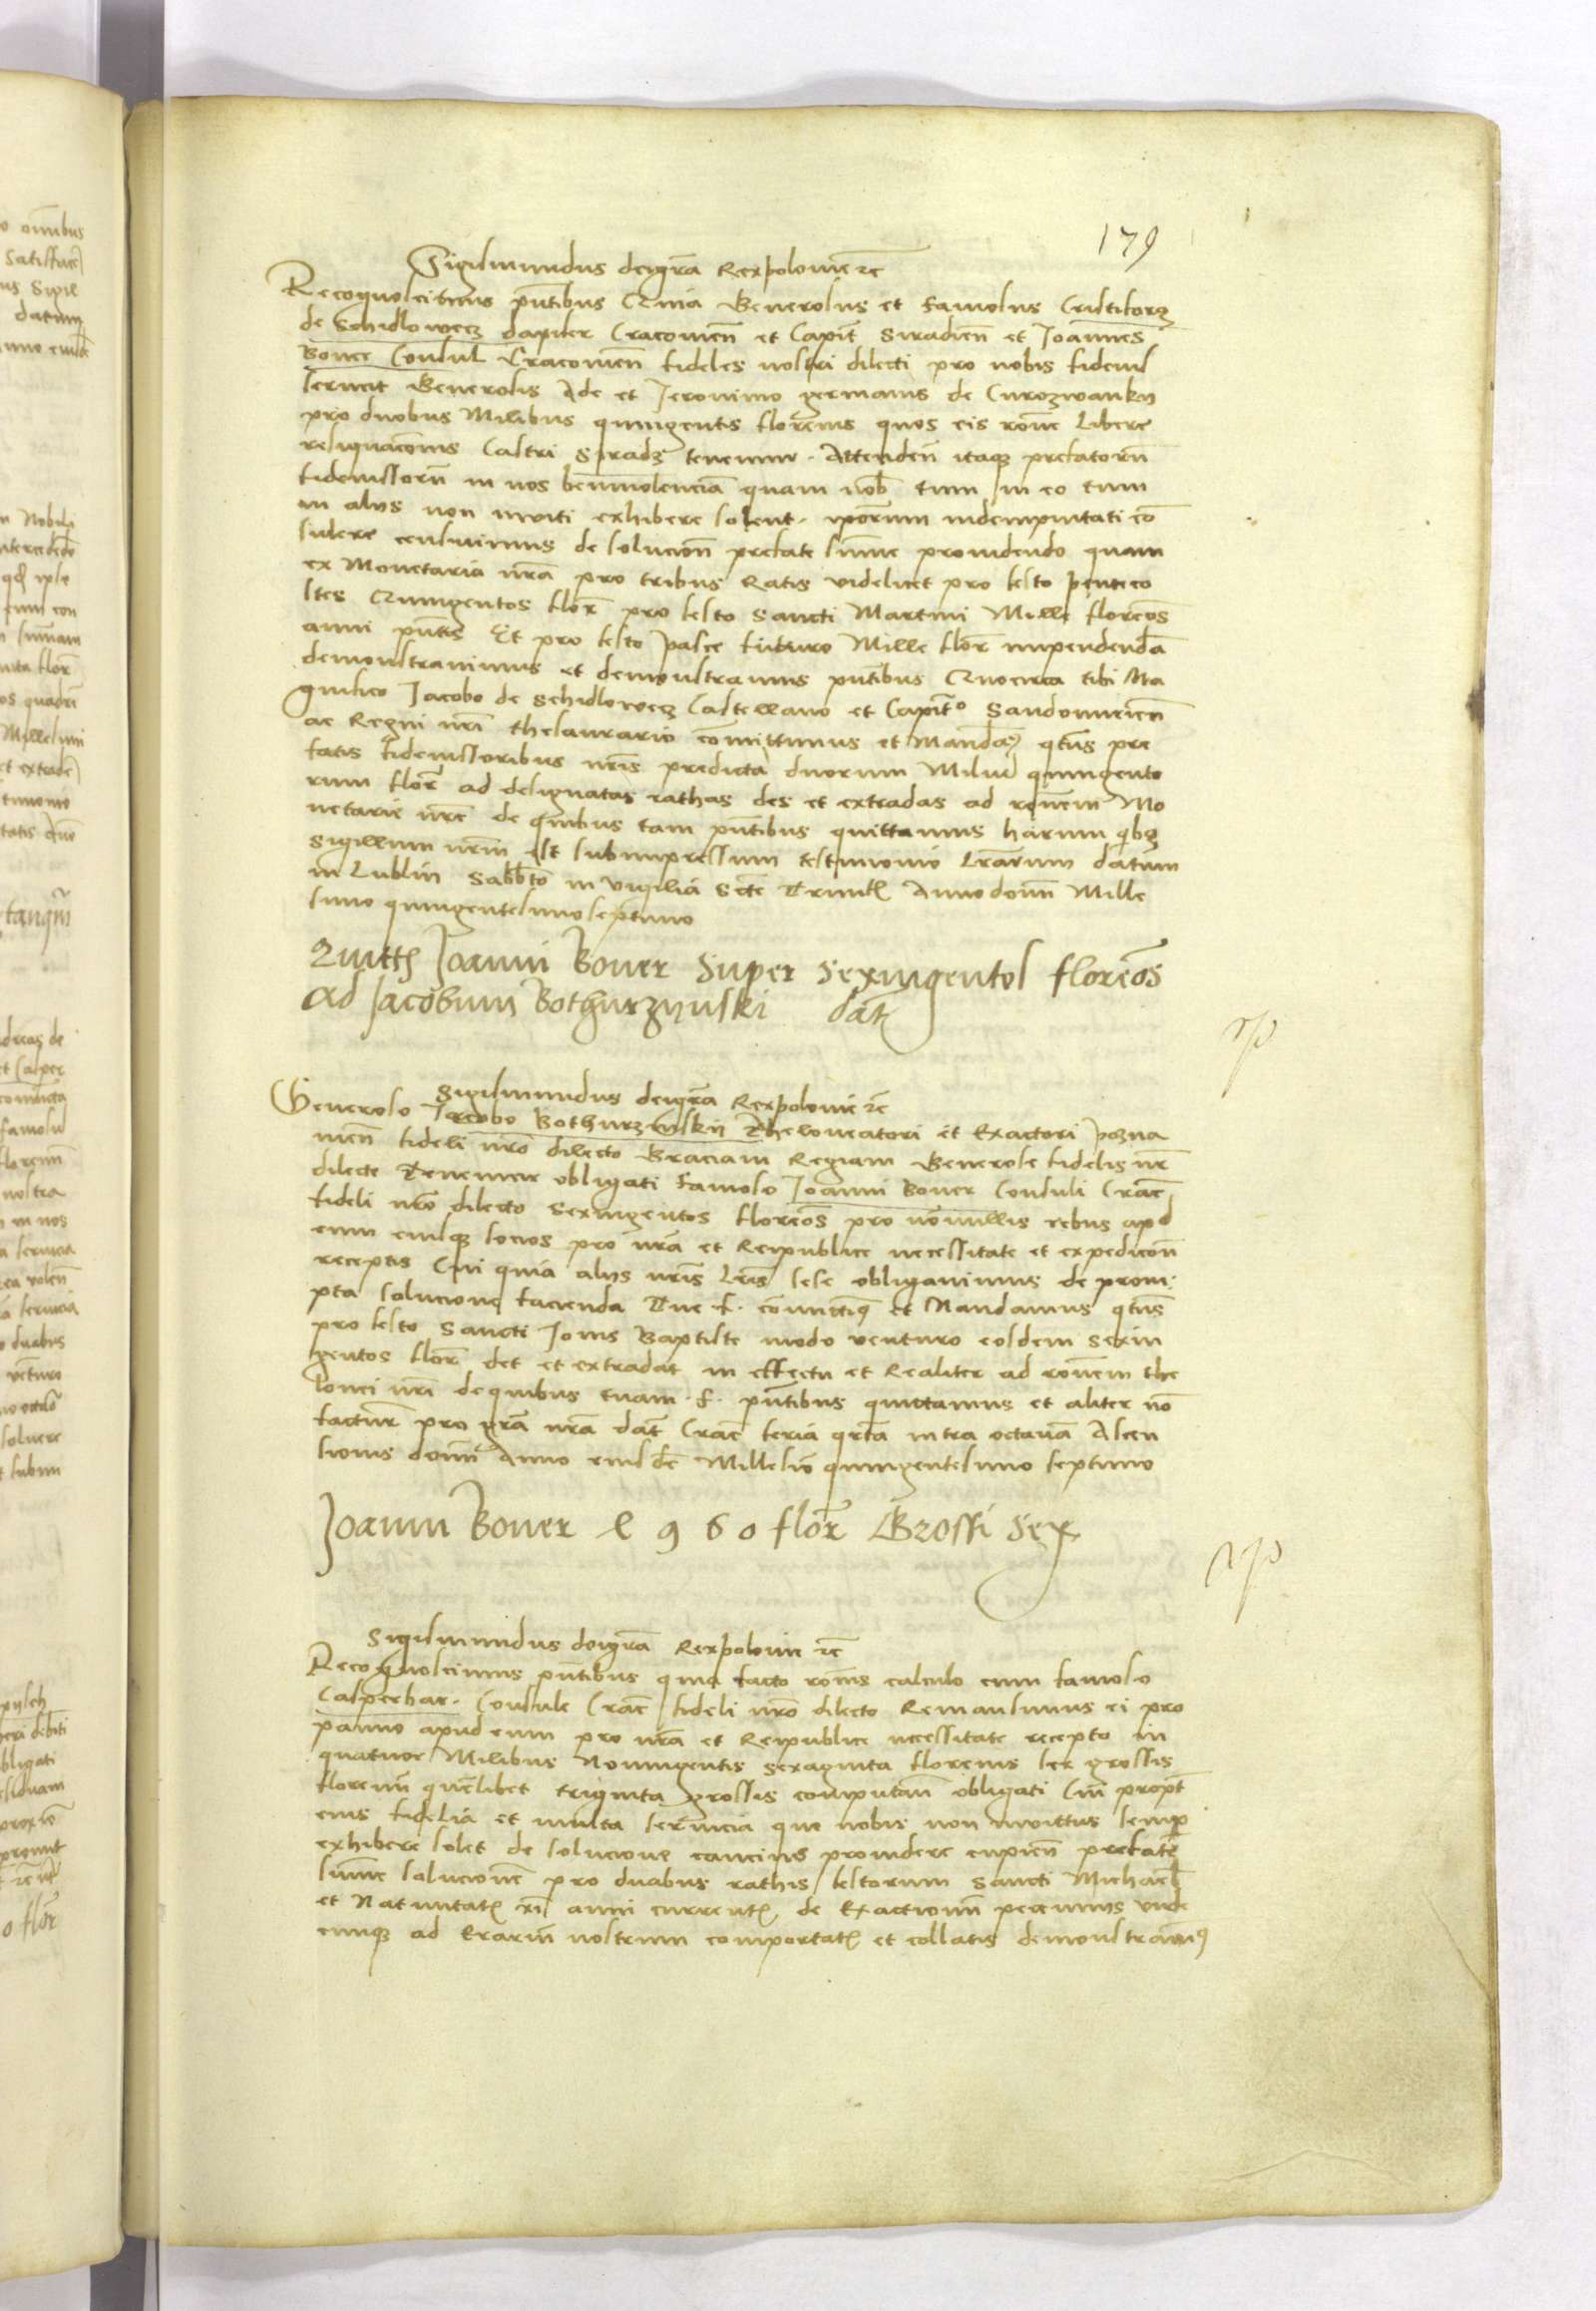 179
Sigismundus dei grã Rex polonie ꝛc
Recognoscimus pñtibus Quia Generosus et famosus Cristiforꝰ
de Schidlowecz dapifer Cracovien̄ et Capit̄ Siradien̄ et Joannes
Boner Consul Cracovien̄ fideles nostri dilecti pro nobis fideius
serunt Generosis Ade et Jeronimo germanis de Curozwanky
pro duobus Milibus quingentis florenis quos eis rõne libere
resignacõnis Castri Siradẕ tenemur. Attenden̄ itaqꝫ prefatorũ
fideiussorũ in nos beniuolenciã quam nob̃ tum in eo tum
in aliis non inviti exhibere solent. ipõrum indempnitati cõ
sulere censuimus de solucion̄ prefate sũme providendo quam
ex Monetaria nr̃a pro tribus Ratis videlicet pro festo penteco
stes Quingentos flor̄ pro festo Sancti Martini Mille florenos
anni pñtis Et pro festo pasce futuro Mille flor̄ impendendã
demonstravimus et demonstramus pñtibus Quocirca tibi Ma
gnifico Jacobo de Schidlowecz Castellano et Capit̄º Sandomirien̄
ac Regni nr̃i thesaurario cõmittimus et Mandaꝰ qt̃us pre
fatis fideiussoribus nr̃is predicta duorum Miliũ quingento
rum flor̄ ad designatas rathas des et extradas ad rõnem Mo
netarie nr̃e de quibus tam pñtibus quittamus harum qͥbꝫ
sigillum nr̃m est subimpressum testimonio lr̃arum datum
in Lublin Sabbto in vigilia Scte Trinitꝭ Anno domĩ Mille
simo quingentesimo septimo
Quittꝭ Joanni Boner super sexingentos florenos
ad Jacobum Bothurzynski datꝭ
rp
Sigismundus dei grã Rex polonie ꝛc
Generoso Jacobo Bothurzynskij Theloneatori et Exactori pozna
nien̄ fideli nr̃o dilecto Graciam Regiam Generose fidelis nr̃
dilecte Tenemur obligati famoso Joanni Boner Consuli Crac̄
fideli nr̃o dilecto sexingentos florenos pro nõnullis rebus apd
eum eiusqꝫ socios pro nr̃a et Reipublice necessitate et expedicon̄
receptis Cui quia aliis nr̃is lr̃is sese obligavimus de prom
pta solucione facienda Tue f. cõmittiꝰ et Mandamus qt̃us
pro festo Sancti Joñis Baptiste modo venturo eosdem sexin
gentos flor̄ det et extradat in effectu et Realiter ad rõnem the
lonei nr̃i de quibus tuam .f. pñtibus quittamus et aliter nõ
factur̄ pro grã nr̃a dat̄ Crac̄ feria qrta intra octavã Ascen
sionis domĩ Anno eiusdẽ Millesiõ quingentesimo septimo
Joanni Boner 4960 flor̄ Grossi sex
rp
Sigismundus dei grã Rex polonie ꝛc
Recognoscimus pñtibus quia facto rõnis calculo cum famoso
Casper bar. Consule Crac̄ fideli nr̃o dilecto Remansimus ei pro
panno apud eum pro nr̃a et Reipublice necessitate recepto in
quatuor Milibus Noningentis sexaginta florenis sex grossis
florenũ quẽlibet triginta grossis computan̄ obligati Cui propt̄
eius fidelia et multa servicia que nobis non invittus semꝑ
exhibere solet de solucione caucius providere cupien̄ prefate
sũme solucionẽ pro duabus rathis festorum Sancti Michael̃
et Nativitatꝭ xi anni currentꝭ de Exactionũ pecuniis unde
cunqꝫ ad Erariũ nostrum comportatꝭ et collatis demonstramꝰ